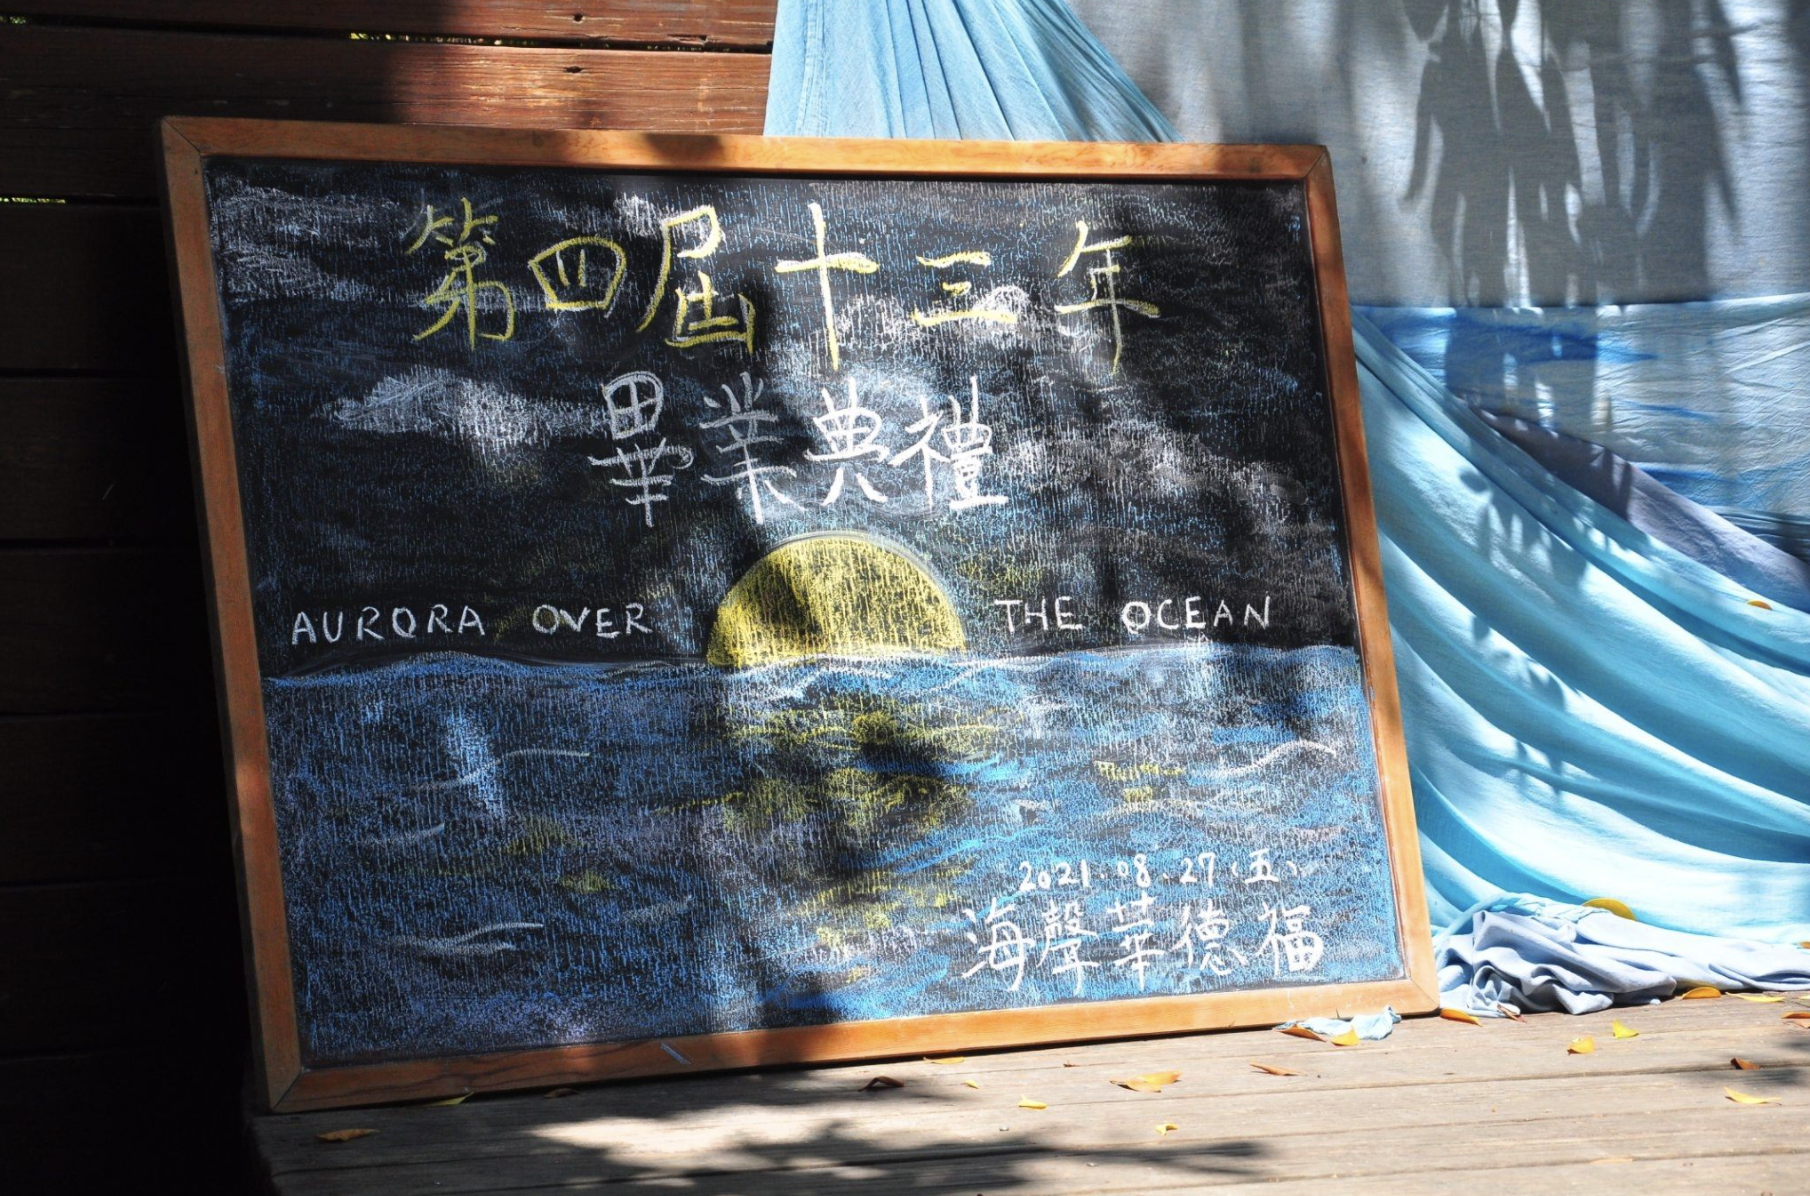 第四屆十三年
畢業典禮
AURORA OVER THE OCEAN
2021.08.27（五）
海聲華德福